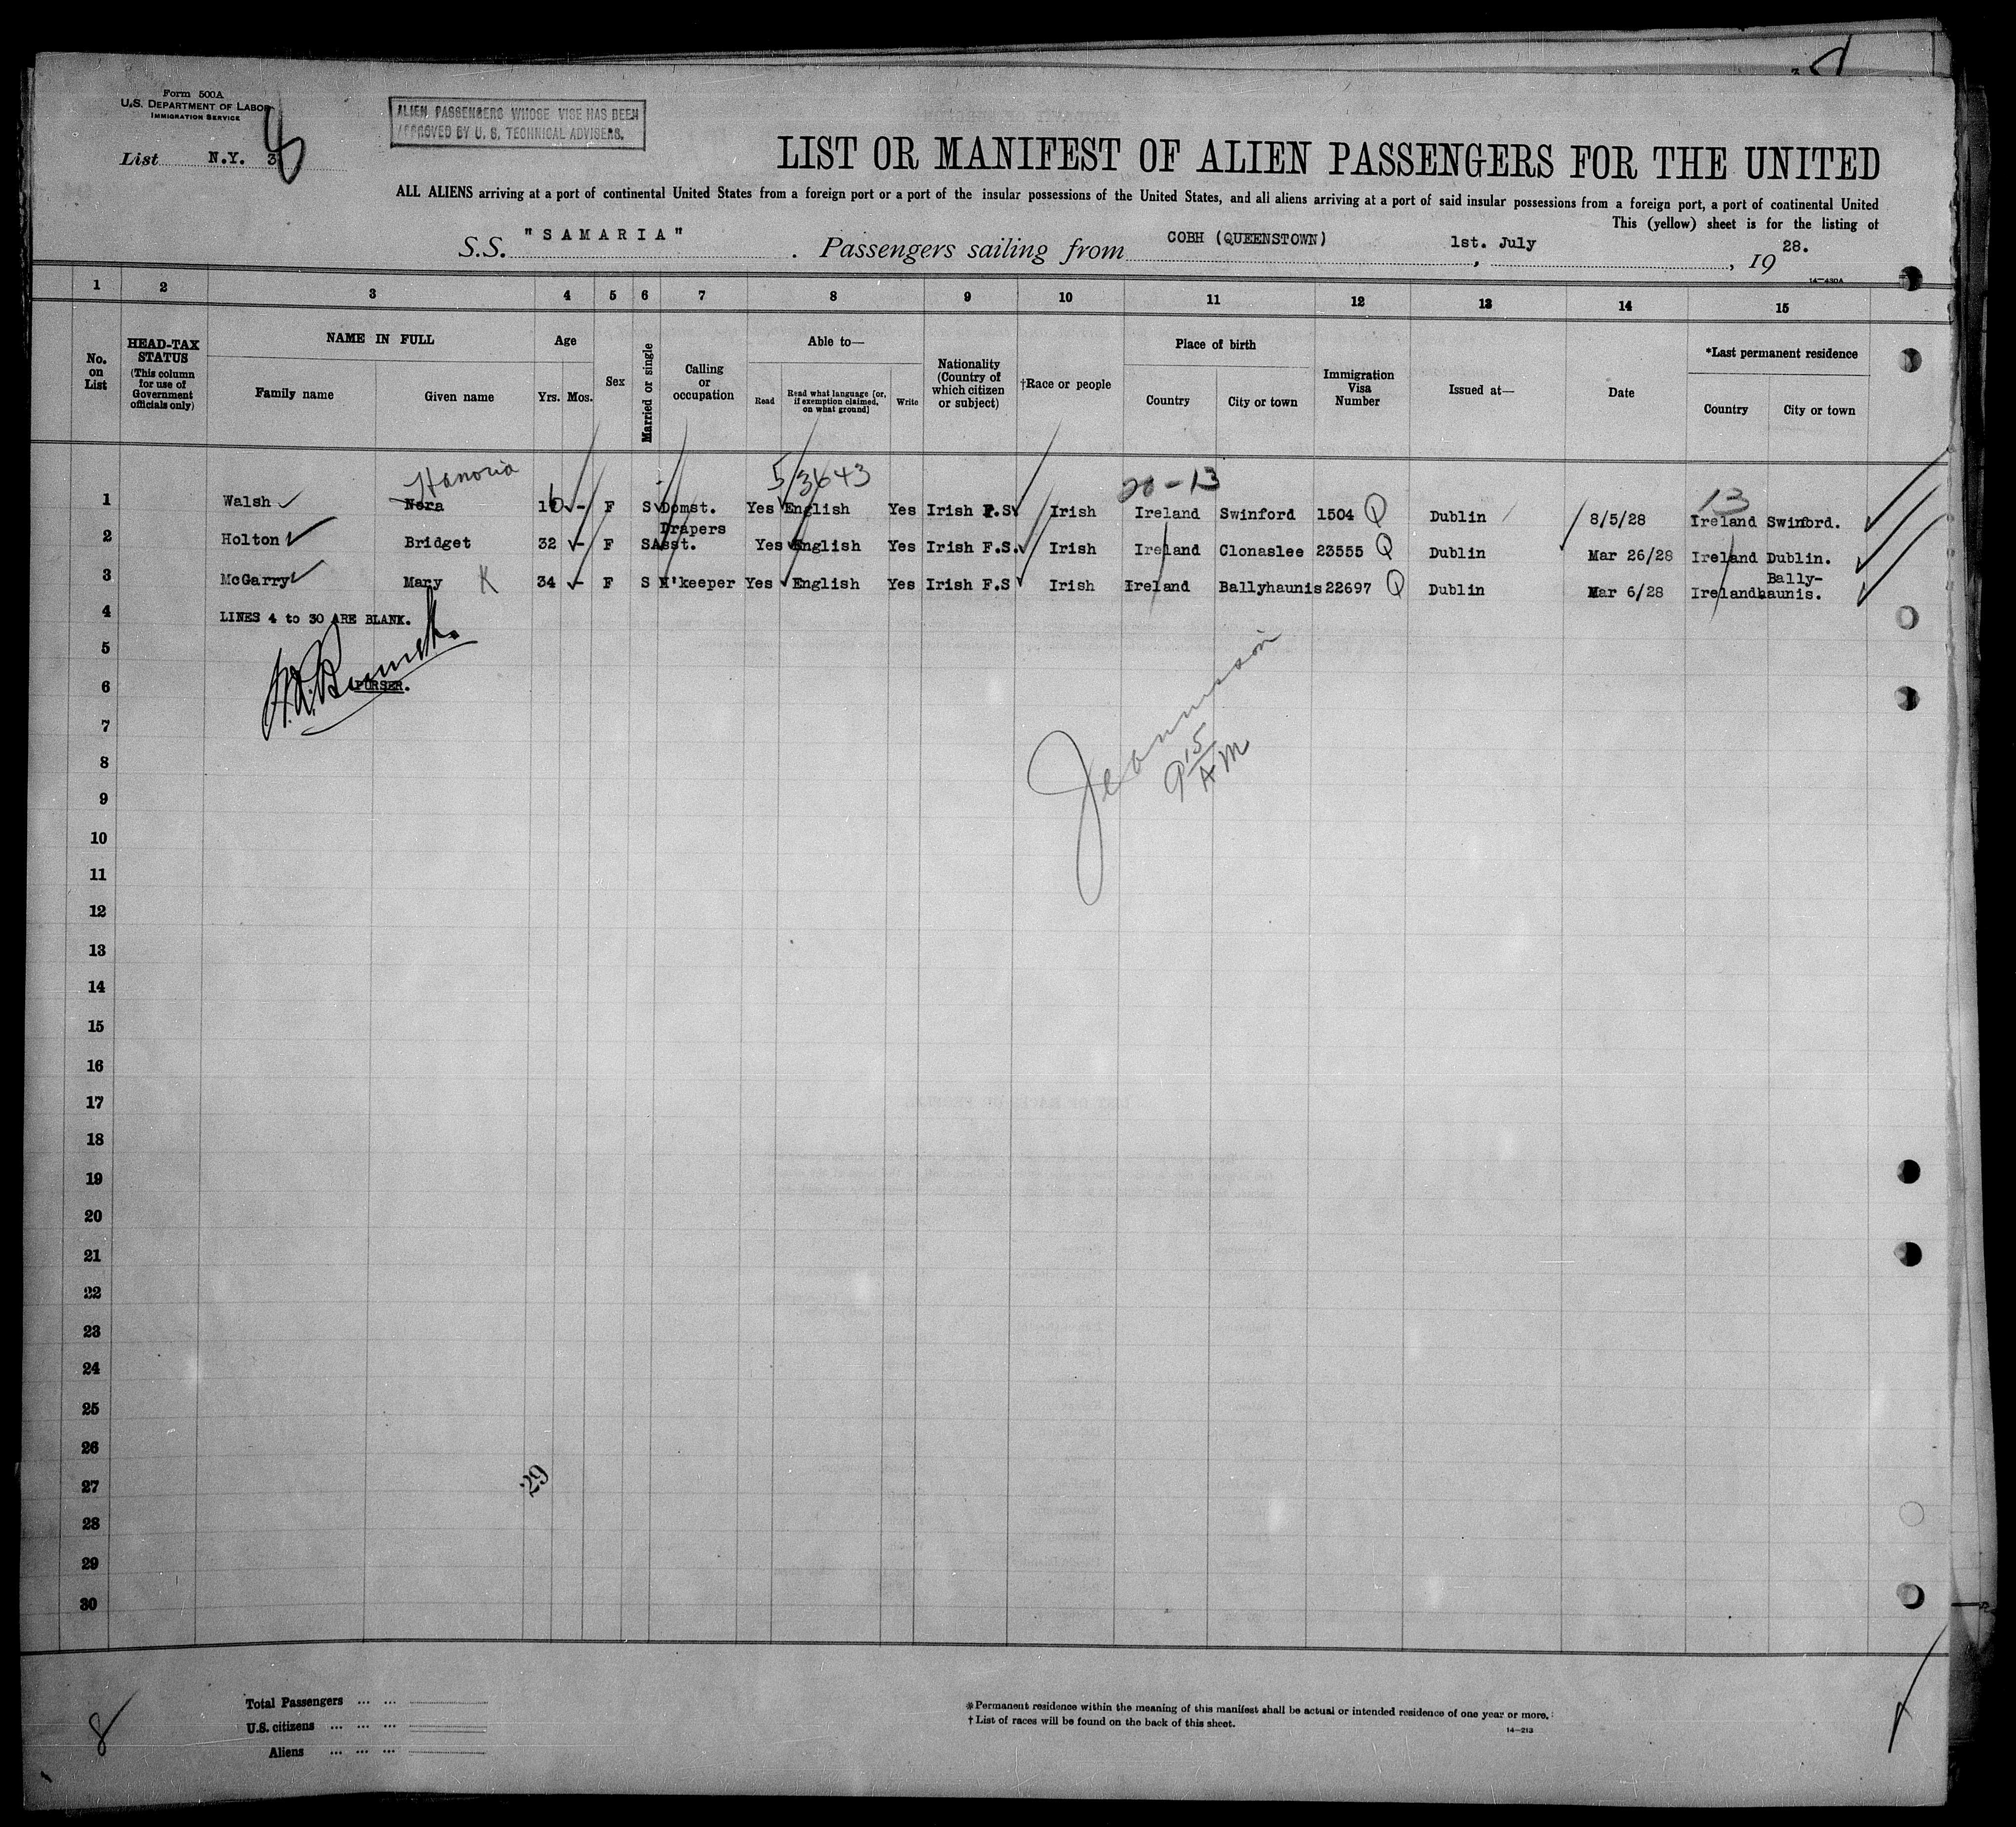 Form 500A
U.S. DEPARTMENT OF LABOR
IMMIGRATION SERVICE
List N.Y. 3
8
ALIEN PASSENGERS WHOSE VISE HAS BEEN
APPROVED BY U. S. TECHNICAL ADVISERS.
LIST OR MANIFEST OF ALIEN PASSENGERS FOR THE UNITED
ALL ALIENS arriving at a port of continental United States from a foreign port or a port of the insular possessions of the United States, and all aliens arriving at a port of said insular possessions from a foreign port, a port of continental United
This (yellow) sheet is for the listing of
S.S. "SAMARIA". Passengers sailing from COBH (QUEENSTOWN), 1st. July, 19 28.
14-430A
1 2 3 4 5 6 7 8 9 10 11 12 13 14 15
No. on List
HEAD-TAX STATUS (This column for use of Government officials only)
NAME IN FULL
Family name Given name
Age
Yrs. Mos.
Sex
Married or single
Calling or occupation
Able to—
Read Read what language [or, if exemption claimed, on what ground] Write
Nationality (Country of which citizen or subject)
†Race or people
Place of birth
Country City or town
Immigration Visa Number
Issued at—
Date
*Last permanent residence
Country City or town
Hanoria 5/3643 20-13 13
1 Walsh Nora 16 - F S Domst. Yes English Yes Irish F.S Irish Ireland Swinford 1504 Q Dublin 8/5/28 Ireland Swinford.
Drapers
2 Holton Bridget 32 - F S Asst. Yes English Yes Irish F.S. Irish Ireland Clonaslee 23555 Q Dublin Mar 26/28 Ireland Dublin.
Bally-
3 McGarry Mary K 34 - F S H'keeper Yes English Yes Irish F.S Irish Ireland Ballyhaunis 22697 Q Dublin Mar 6/28 Ireland haunis.
4 LINES 4 to 30 ARE BLANK.
5
6 PURSER.
7
8
9 15 AM
9
10
11
12
13
14
15
16
17
18
19
20
21
22
23
24
25
26
27
29
28
29
30
8
Total Passengers ... ...
U.S. citizens ... ... ...
Aliens ... ... ...
*Permanent residence within the meaning of this manifest shall be actual or intended residence of one year or more.
†List of races will be found on the back of this sheet.
14-213